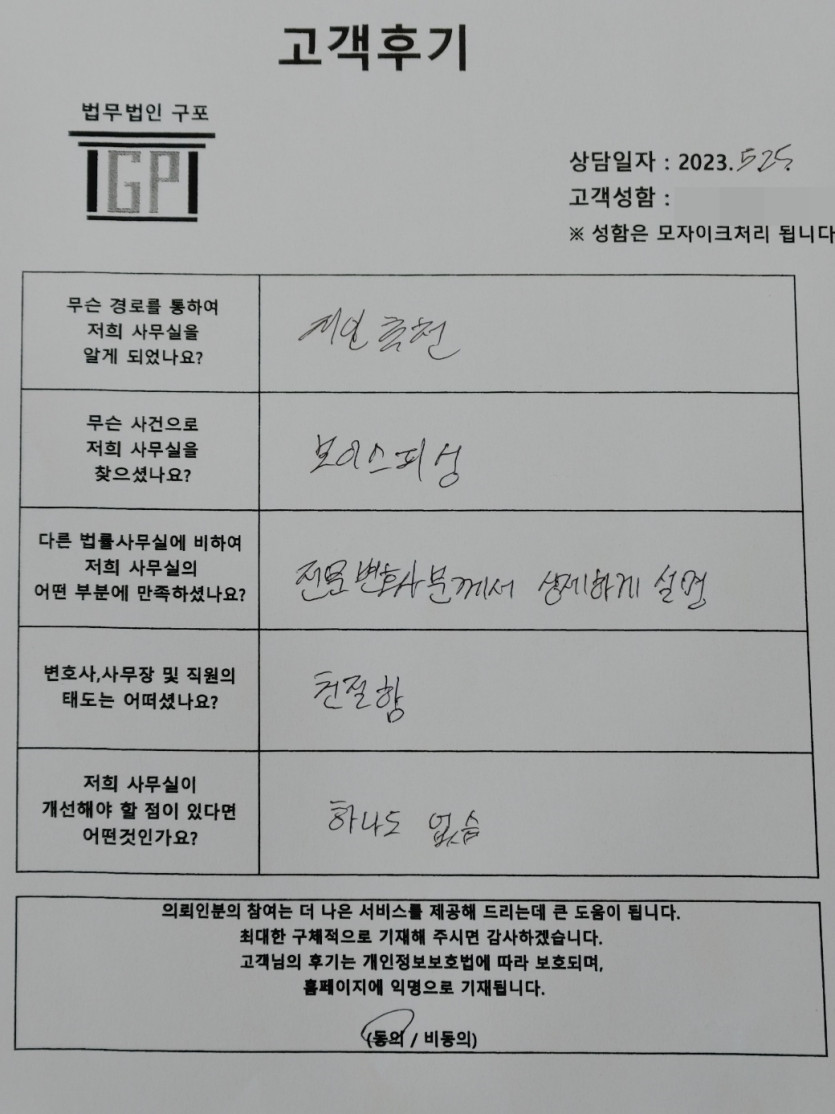 고객후기
법무법인 구포
IGPI
상담일자 : 2023. 5 25.
고객성함 :
※ 성함은 모자이크처리 됩니다
무슨 경로를 통하여
저희 사무실을
알게 되었나요?
지인 추천
무슨 사건으로
저희 사무실을
찾으셨나요?
보이스피싱
다른 법률사무실에 비하여
저희 사무실의
어떤 부분에 만족하셨나요?
전문변호사분께서 상세하게 설명
변호사,사무장 및 직원의
태도는 어떠셨나요?
친절함
저희 사무실이
개선해야 할 점이 있다면
어떤것인가요?
하나도 없슴
의뢰인분의 참여는 더 나은 서비스를 제공해 드리는데 큰 도움이 됩니다.
최대한 구체적으로 기재해 주시면 감사하겠습니다.
고객님의 후기는 개인정보보호법에 따라 보호되며,
홈페이지에 익명으로 기재됩니다.
(동의 / 비동의)